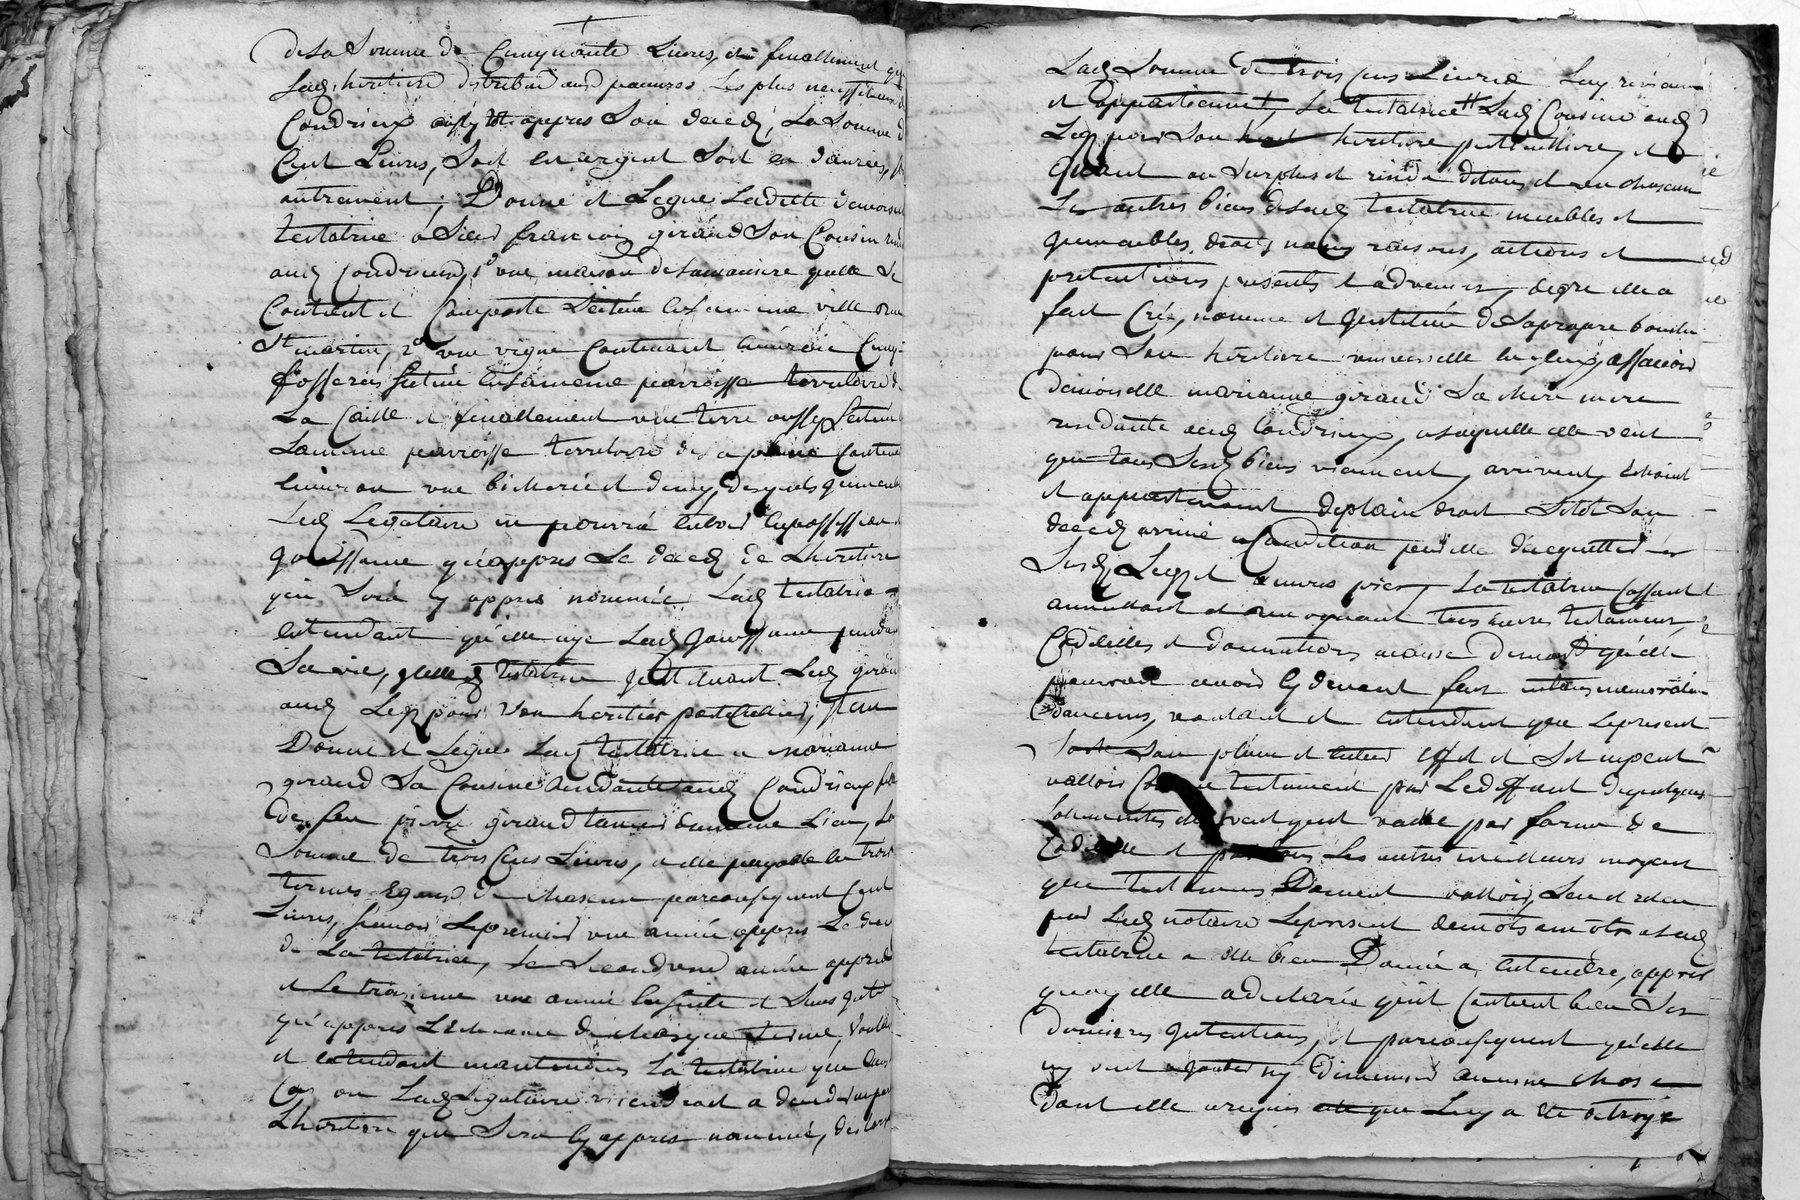 de la somme de Cinquante Livres, et finallement que
Lad. heritiere distribue aux pauvres les plus necessiteux de
Condrieux aussy tot appres son decedz, La somme de
Cent Livres, soit en argent soit en danrées,
autrement; Donne et Legue Laditte demoiselle
testatrice a Sieur francois giraud son Cousin
aud. Condrieux, 1° une maison de la maniere quelle se
Contient et Comporte scituée en la meme ville rue
St martin, 2° une vigne Contenant environ Cinq
fosserées scituée en la meme parroisse territoire de
La Caille et finallement une terre aussy scituée
La meme parroisse territoire de la plaine Contenant
environ une bicherée et demy, desquels
Led. Legataire ne pourrá entrer en possession et
jouissance qu'appres Le decedz de L'heritiere
qui serà cy appres nommée, Lad. testatrice
entendant qu'elle aye Lad. jouissance pendant
sa vie, testatrice jnstituant Led. giraud
aud. Legz pour son heritier particullier, jtem
Donne et Legue Lad. testatrice a marianne
giraud sa Cousine residante aud. Condrieux fille
de feu pierre giraud dumeme Lieu, La
somme de trois Cens Livres, a elle payable en trois
termes Egaux de chascun parconsequent Cent
Livres, scavoir Le premier une année appres Le decedz
de La testatrice, Le second une année appres
et Le troisieme une année ensuitte et sans jnterets
qu'appres L'echeance de chasque terme, voulant
et entendant neantmoins La testatrice que dans le
Cas ou Lad. Legataire viendroit a deceder
L'heritiere que sera cy appres nommée, des lors
Lad. somme de trois Cens Livres Luy revienne
et appartienne, La testatrice Lad. Cousine aud.
Legz pour son heritiere particulliere, et
Quant au surplus et residu de tous et un chascun
Les autres biens de lad. testatrice meubles et
jmmeubles, droits, noms, raisons, actions et
pretentions presents et advenir, degre elle a
fait Crée, nommé et jnstitué de sa propre bouche
pour son heritiere universelle assavoir
demoiselle marianne giraud sa chere mere
residante aud. Condrieux, a laquelle elle veut
que tous sesd. biens viennent, arrivent, échoint
et appartiennent de plain droit sitot son
decedz arrivé a Condition par elle d'acquitter
Lesd. Legz et œuvres pies, La testatrice Cassant
annullant et revoquant tous autres testaments
Codicilles et donnations acause de mort qu'elle
pourroit avoir cy devant fait
voulant et entendant que Le present
sorte son plain et entier effet et sil ne peut
valloir Comme testament par Le deffaut de quelques
solemnités elle veut quil vaille par forme de
Codicille et par tous Les autres meilleurs moyens
que testaments peuvent valloir, Leu et releu
par Led. notaire Le present de mots a mots a Lad.
testatrice a elle bien Donné a entendre, appres
quoy elle a declaré quil Contient bien ses
dernieres jntentions, et parconsequent qu'elle
ny veut ajouter ny diminuer aucune chose
dont elle a requis acte que Luy a ete octroyé